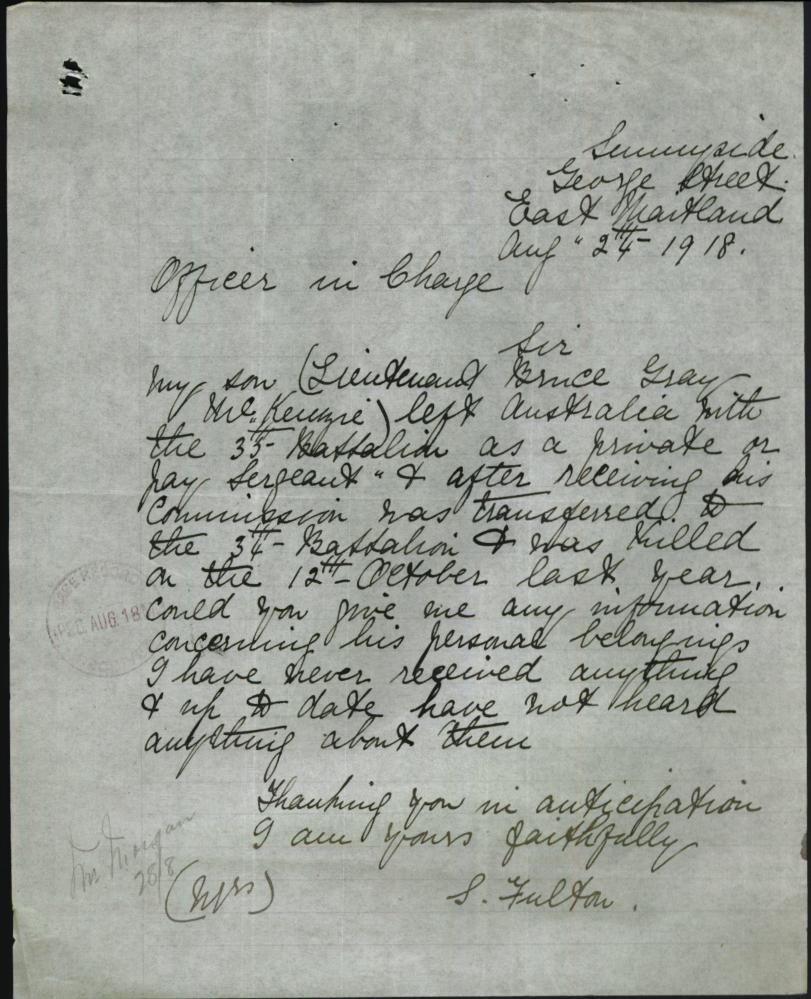 Sunnyside.
George Street.
East Maitland
Aug " 24th 1918.
Officer in Charge
Sir
My son (Lieutenant Bruce Gray
McKenzie) left Australia with
the 35th Battalion as a private or
pay Sergeant " & after receiving his
Commission was transferred to
the 34th Battalion & was killed
on the 12th October last year.
Could you give me any information
concerning his personal belongings
I have never received anything
& up to date have not heard
anything about them
Thanking you in anticipation
I am yours faithfully
(Mrs) S. Fulton.
AUG. 18
Morgan
28/8